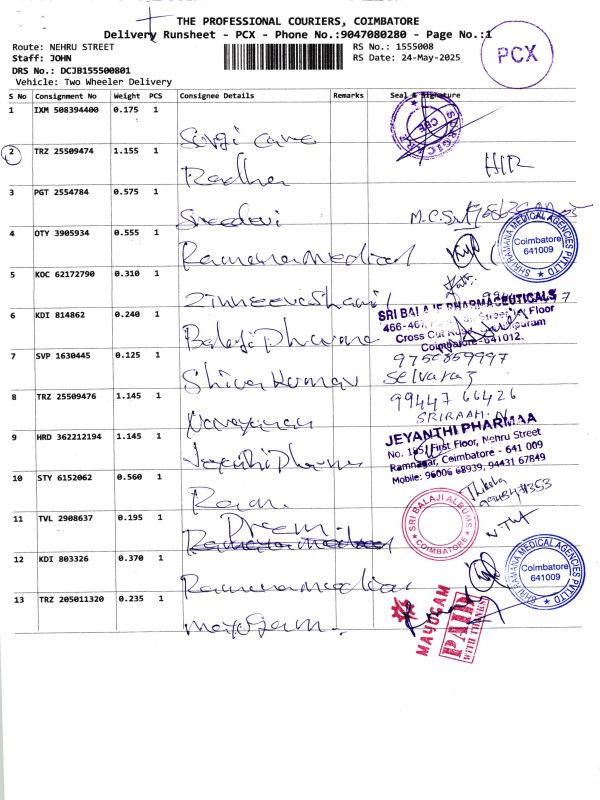 THE PROFESSIONAL COURIERS, COIMBATORE
Delivery Runsheet - PCX - Phone No.:9047080280 - Page No.:1
Route: NEHRU STREET
RS No.: 1555008
Staff: JOHN
RS Date: 24-May-2025
DRS No.: DCJB155500801
Vehicle: Two Wheeler Delivery
PCX
S No Consignment No Weight PCS Consignee Details Remarks Seal & Signature
1 IXM 508394400 0.175 1
SURGICARE
CBE
2 TRZ 25509474 1.155 1
Radha
3 PGT 2554784 0.575 1
Sreedevi
M.C.
4 OTY 3905934 0.555 1
Ramana medical
SHRI RAMANA MEDICAL AGENCIES PVT LTD
Coimbatore
641009
5 KOC 62172790 0.310 1
6 KDI 814862 0.240 1
Balaji Pharma
SRI BALAJE PHARMACEUTICALS
466-467, Floor
Cross Cut Road
Coimbatore - 641012.
7 SVP 1630445 0.125 1
Shiva Kumar
9750859997
Selvaraj
8 TRZ 25509476 1.145 1
Narayanan
99447 66426
SRIRAAM.N
9 HRD 362212194 1.145 1
Jeyanthi Pharma
JEYANTHI PHARMAA
No. 165, First Floor, Nehru Street
Ramnagar, Coimbatore - 641 009
Mobile: 96006 68939, 94431 67849
10 STY 6152062 0.560 1
Ram.
11 TVL 2908637 0.195 1
Dream.
Ramana medical
SRI BALAJI ALBUMS
COIMBATORE
12 KDI 803326 0.370 1
Ramana medical
SHRI RAMANA MEDICAL AGENCIES PVT LTD
Coimbatore
641009
13 TRZ 205011320 0.235 1
Mayogam.
MAYOGAM
PAID
WITH THANKS